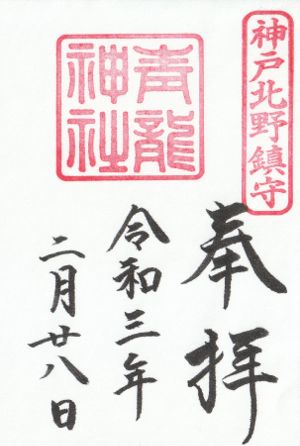 神戸北野鎮守
奉拝
青龍
神社
令和三年
二月廿八日